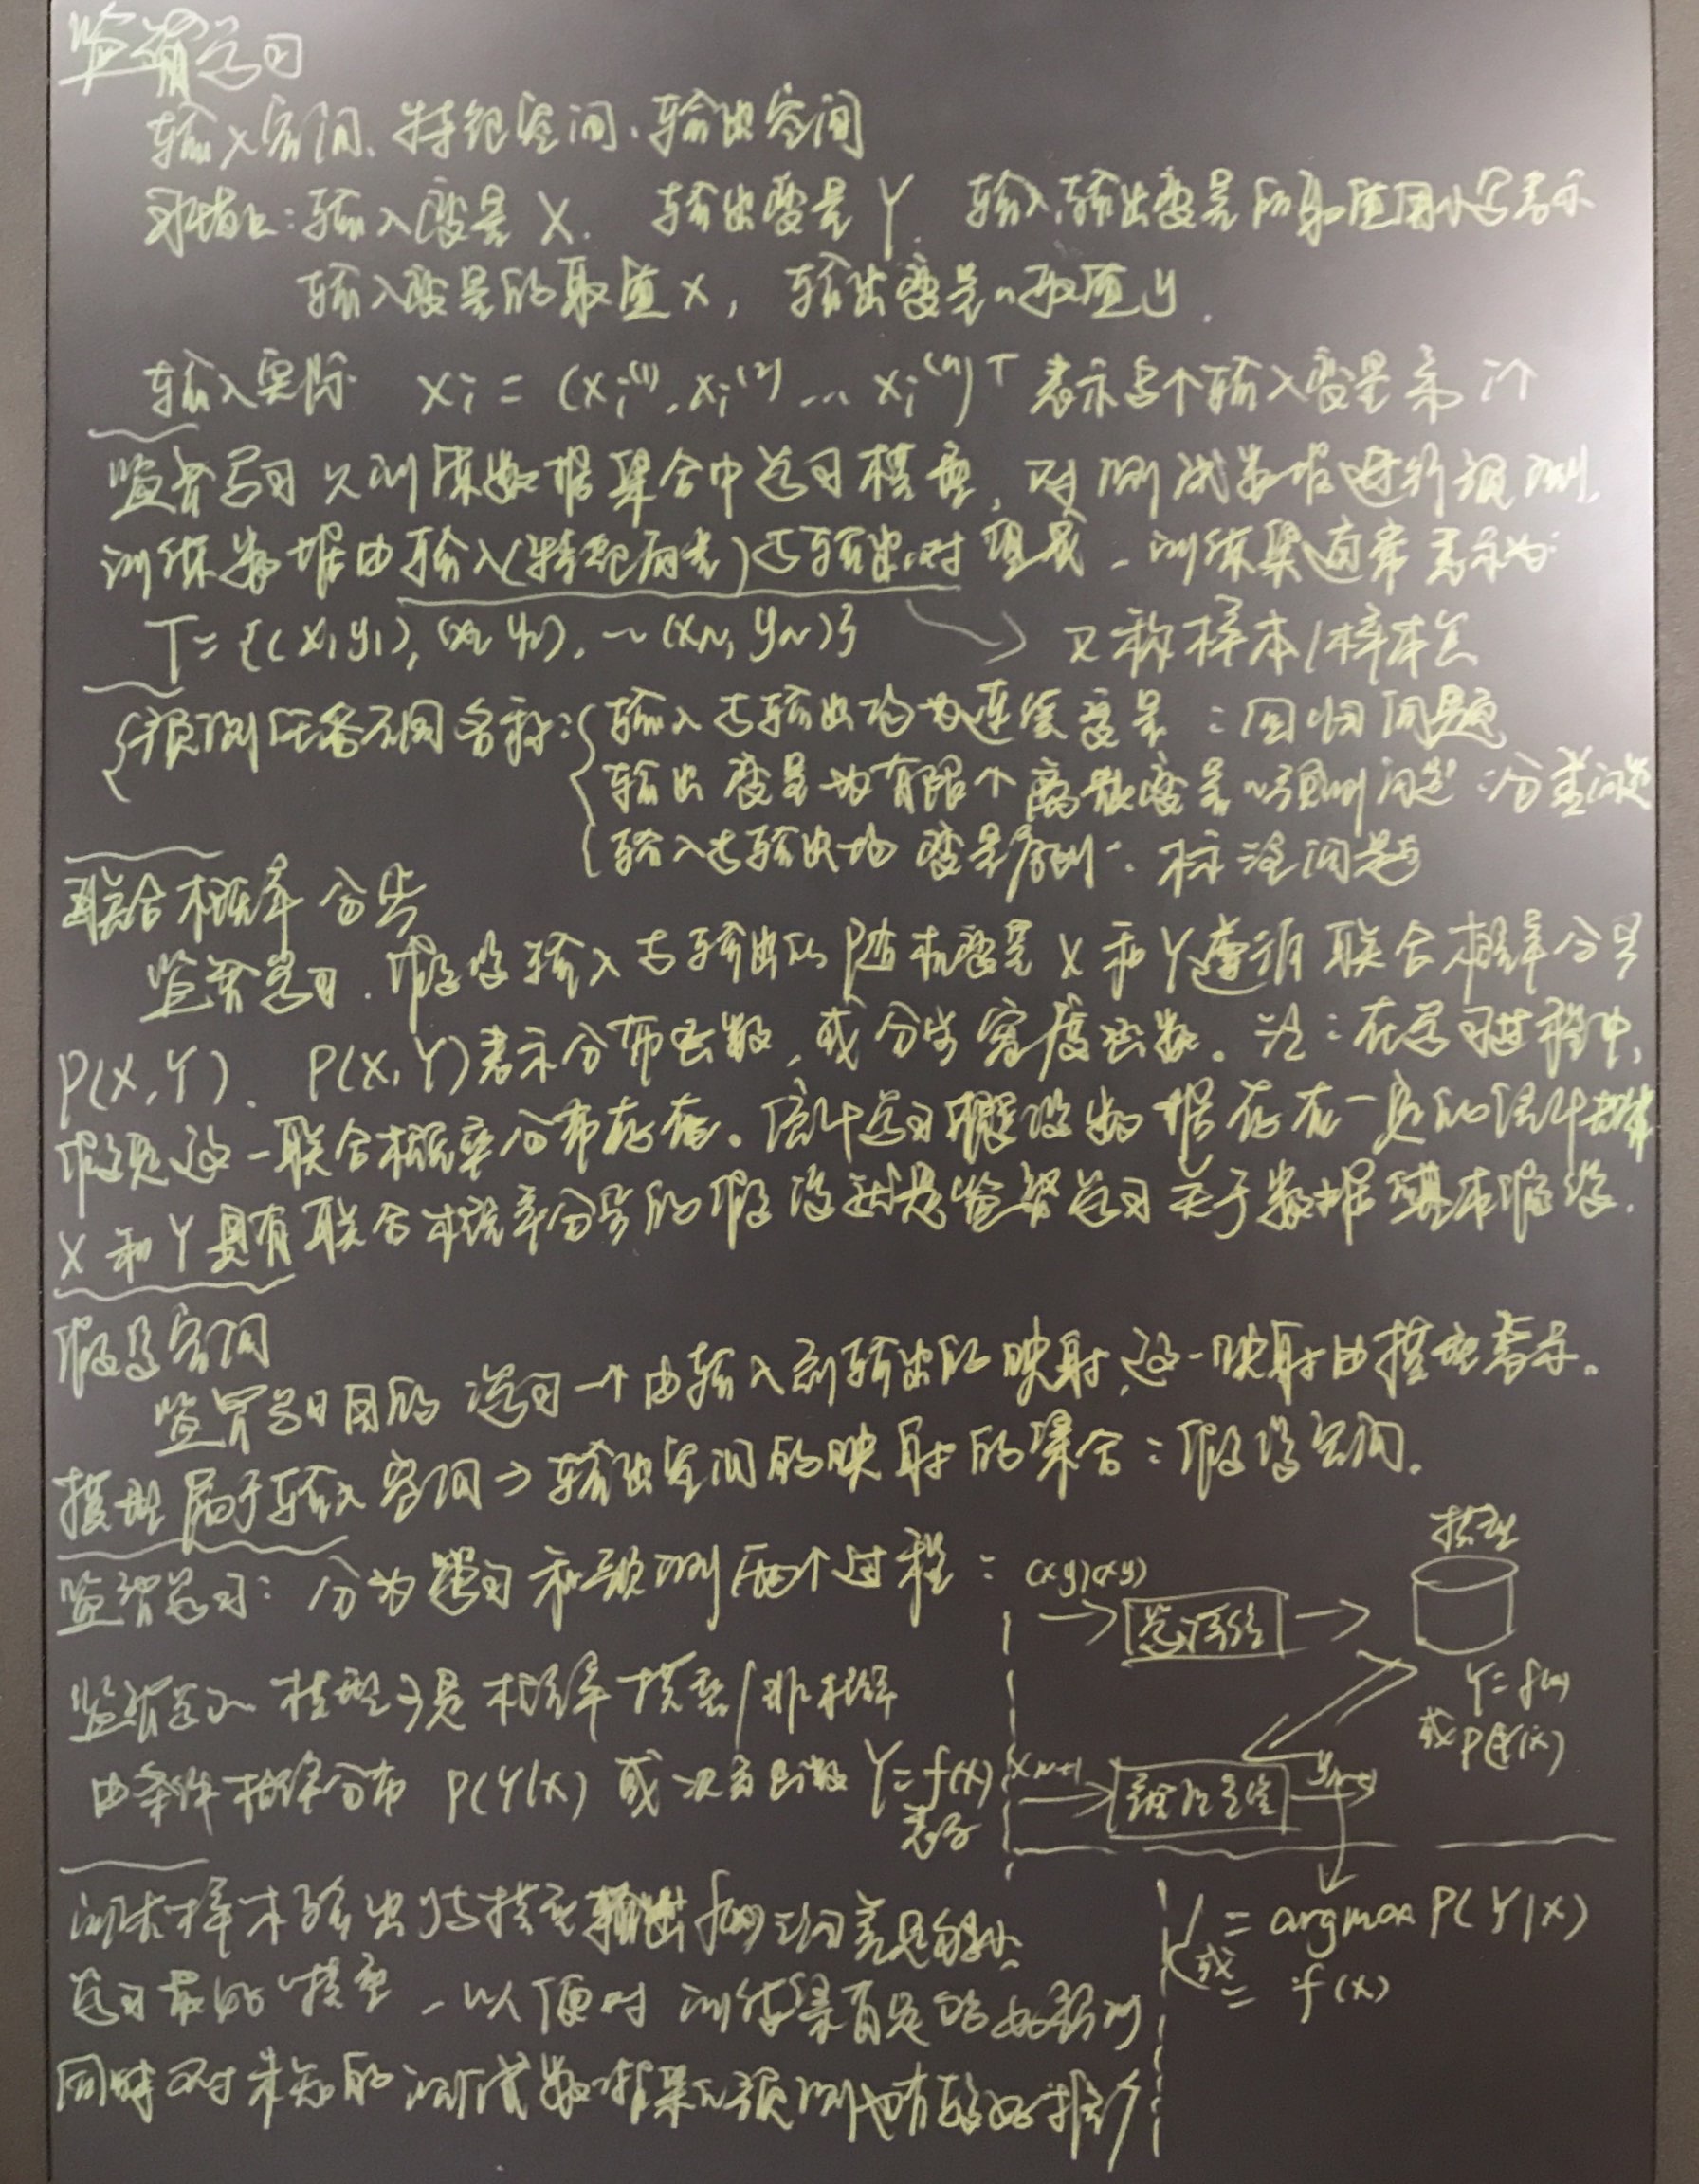 监督学习
输入空间、特征空间、输出空间
输入变量 X. 输出变量 Y 输入,输出变量的取值用小写表示
输入变量的取值 x, 输出变量的取值 y.
输入实际 xi = (xi⁽¹⁾, xi⁽²⁾ ... xi⁽ⁿ⁾)ᵀ 表示多个输入变量第 i个
监督学习从训练数据集合中学习模型, 对测试数据进行预测.
训练数据由输入(特征向量)与输出对组成,训练集通常表示为:
T = {(x1,y1), (x2 y2), ~ (xN, yN)} → 又称样本/样本点
预测任务不同名称: 输入与输出均为连续变量:回归问题
输出变量为有限个离散变量的预测问题:分类问题
输入与输出均变量序列:标注问题
联合概率分布
监督学习.假设输入与输出的随机变量X和Y遵循联合概率分布
P(X,Y). P(X,Y)表示分布函数,或分布密度函数。注:在学习过程中,
假定这一联合概率分布存在。统计学习假设数据存在一定的统计规律
X和Y具有联合概率分布的假设就是监督学习关于数据基本假设.
假设空间
监督学习目的学习一个由输入到输出的映射,这一映射由模型表示。
模型属于输入空间→输出空间的映射的集合:假设空间.
监督学习:分为学习和预测两个过程:
(x y)(x y) → 学习系统 → 模型
Y = f(x)
或 P(Y|X)
监督学习 模型可是概率模型/非概率
由条件概率分布 P(Y|X) 或决策函数 Y = f(x)
表示
xN+1 → 预测系统 → yN+1
= argmax P(Y|X)
或 = f(x)
训练样本输出yi与模型输出f(xi)之间差足够小
学习最好的模型,以便对训练集有足够好预测
同时对未知的测试数据集的预测也有较好推广